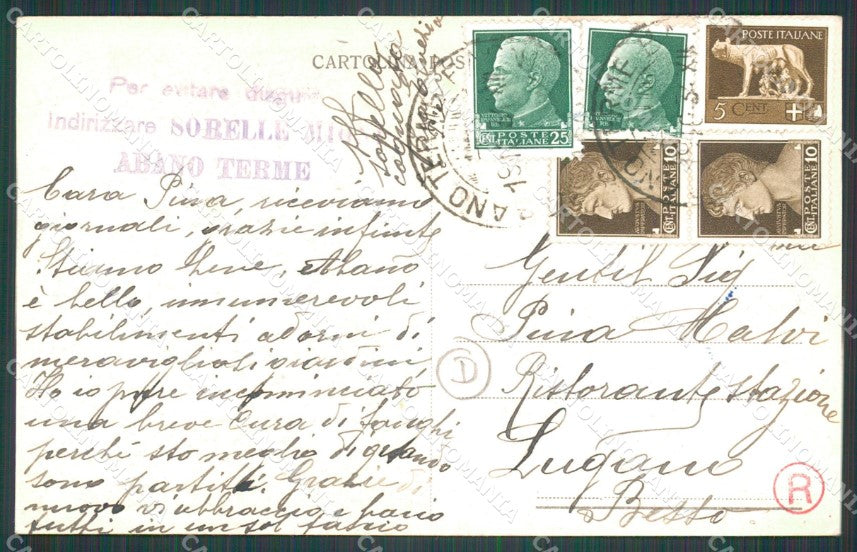 CARTOLINA POS
Per evitare disguidi
Indirizzare SORELLE MIO
ABANO TERME
Cara Pina, riceviamo
giornali, grazie infinite
Stiamo bene, Abano
è bello, innumerevoli
stabilimenti adorni di
meravigliosi giardini
Ho io pure incominciato
una breve cura di fanghi
perché sto meglio di quando
sono partita. Grazie di
nuovo vi abbraccio e bacio
tutti in un sol fascio
POSTE
ITALIANE
25
POSTE ITALIANE
5 CENT.
POSTE
ITALIANE
10
POSTE
ITALIANE
10
ANO TERME
Gentil Sig
Pina Malvi
Ristorante stazione
Lugano
Besso
D
R
CARTOLINOMANIA